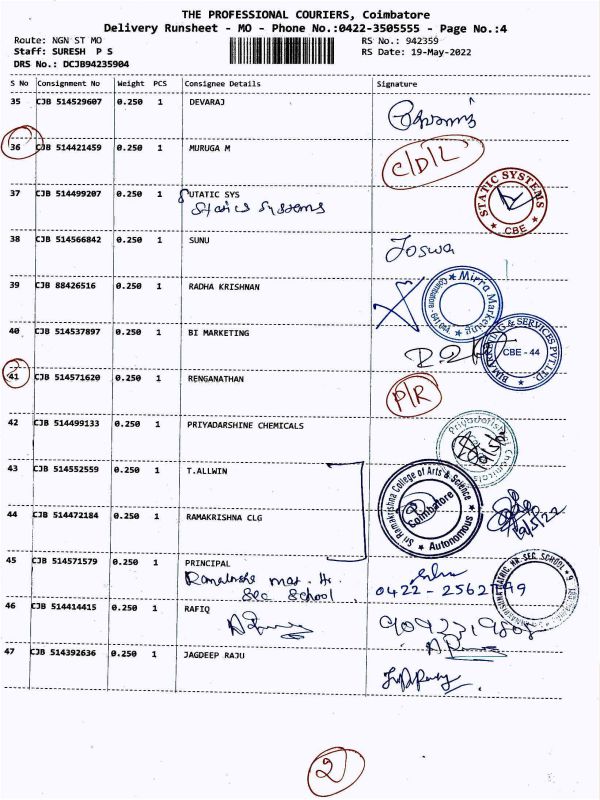 THE PROFESSIONAL COURIERS, Coimbatore
Delivery Runsheet - MO - Phone No.:0422-3505555 - Page No.:4
Route: NGN ST MO
RS No.: 942359
Staff: SURESH P S
RS Date: 19-May-2022
DRS No.: DCJB94235904
S No Consignment No Weight PCS Consignee Details Signature
35 CJB 514529607 0.250 1 DEVARAJ
36 CJB 514421459 0.250 1 MURUGA M C/D/L
37 CJB 514499207 0.250 1 UTATIC SYS
Statics Systems
STATIC SYSTEMS CBE
38 CJB 514566842 0.250 1 SUNU Joswa
39 CJB 88426516 0.250 1 RADHA KRISHNAN
Mirra Marketing
40 CJB 514537897 0.250 1 BI MARKETING
MARKETING & SERVICES PVT.LTD CBE - 44
41 CJB 514571620 0.250 1 RENGANATHAN P/R
42 CJB 514499133 0.250 1 PRIYADARSHINE CHEMICALS
Priyadarshini Chemicals
43 CJB 514552559 0.250 1 T.ALLWIN
Sri Ramakrishna College of Arts & Science Coimbatore Autonomous
44 CJB 514472184 0.250 1 RAMAKRISHNA CLG
45 CJB 514571579 0.250 1 PRINCIPAL
mat. Hr.
Sec School.
46 CJB 514414415 0.250 1 RAFIQ
47 CJB 514392636 0.250 1 JAGDEEP RAJU
2